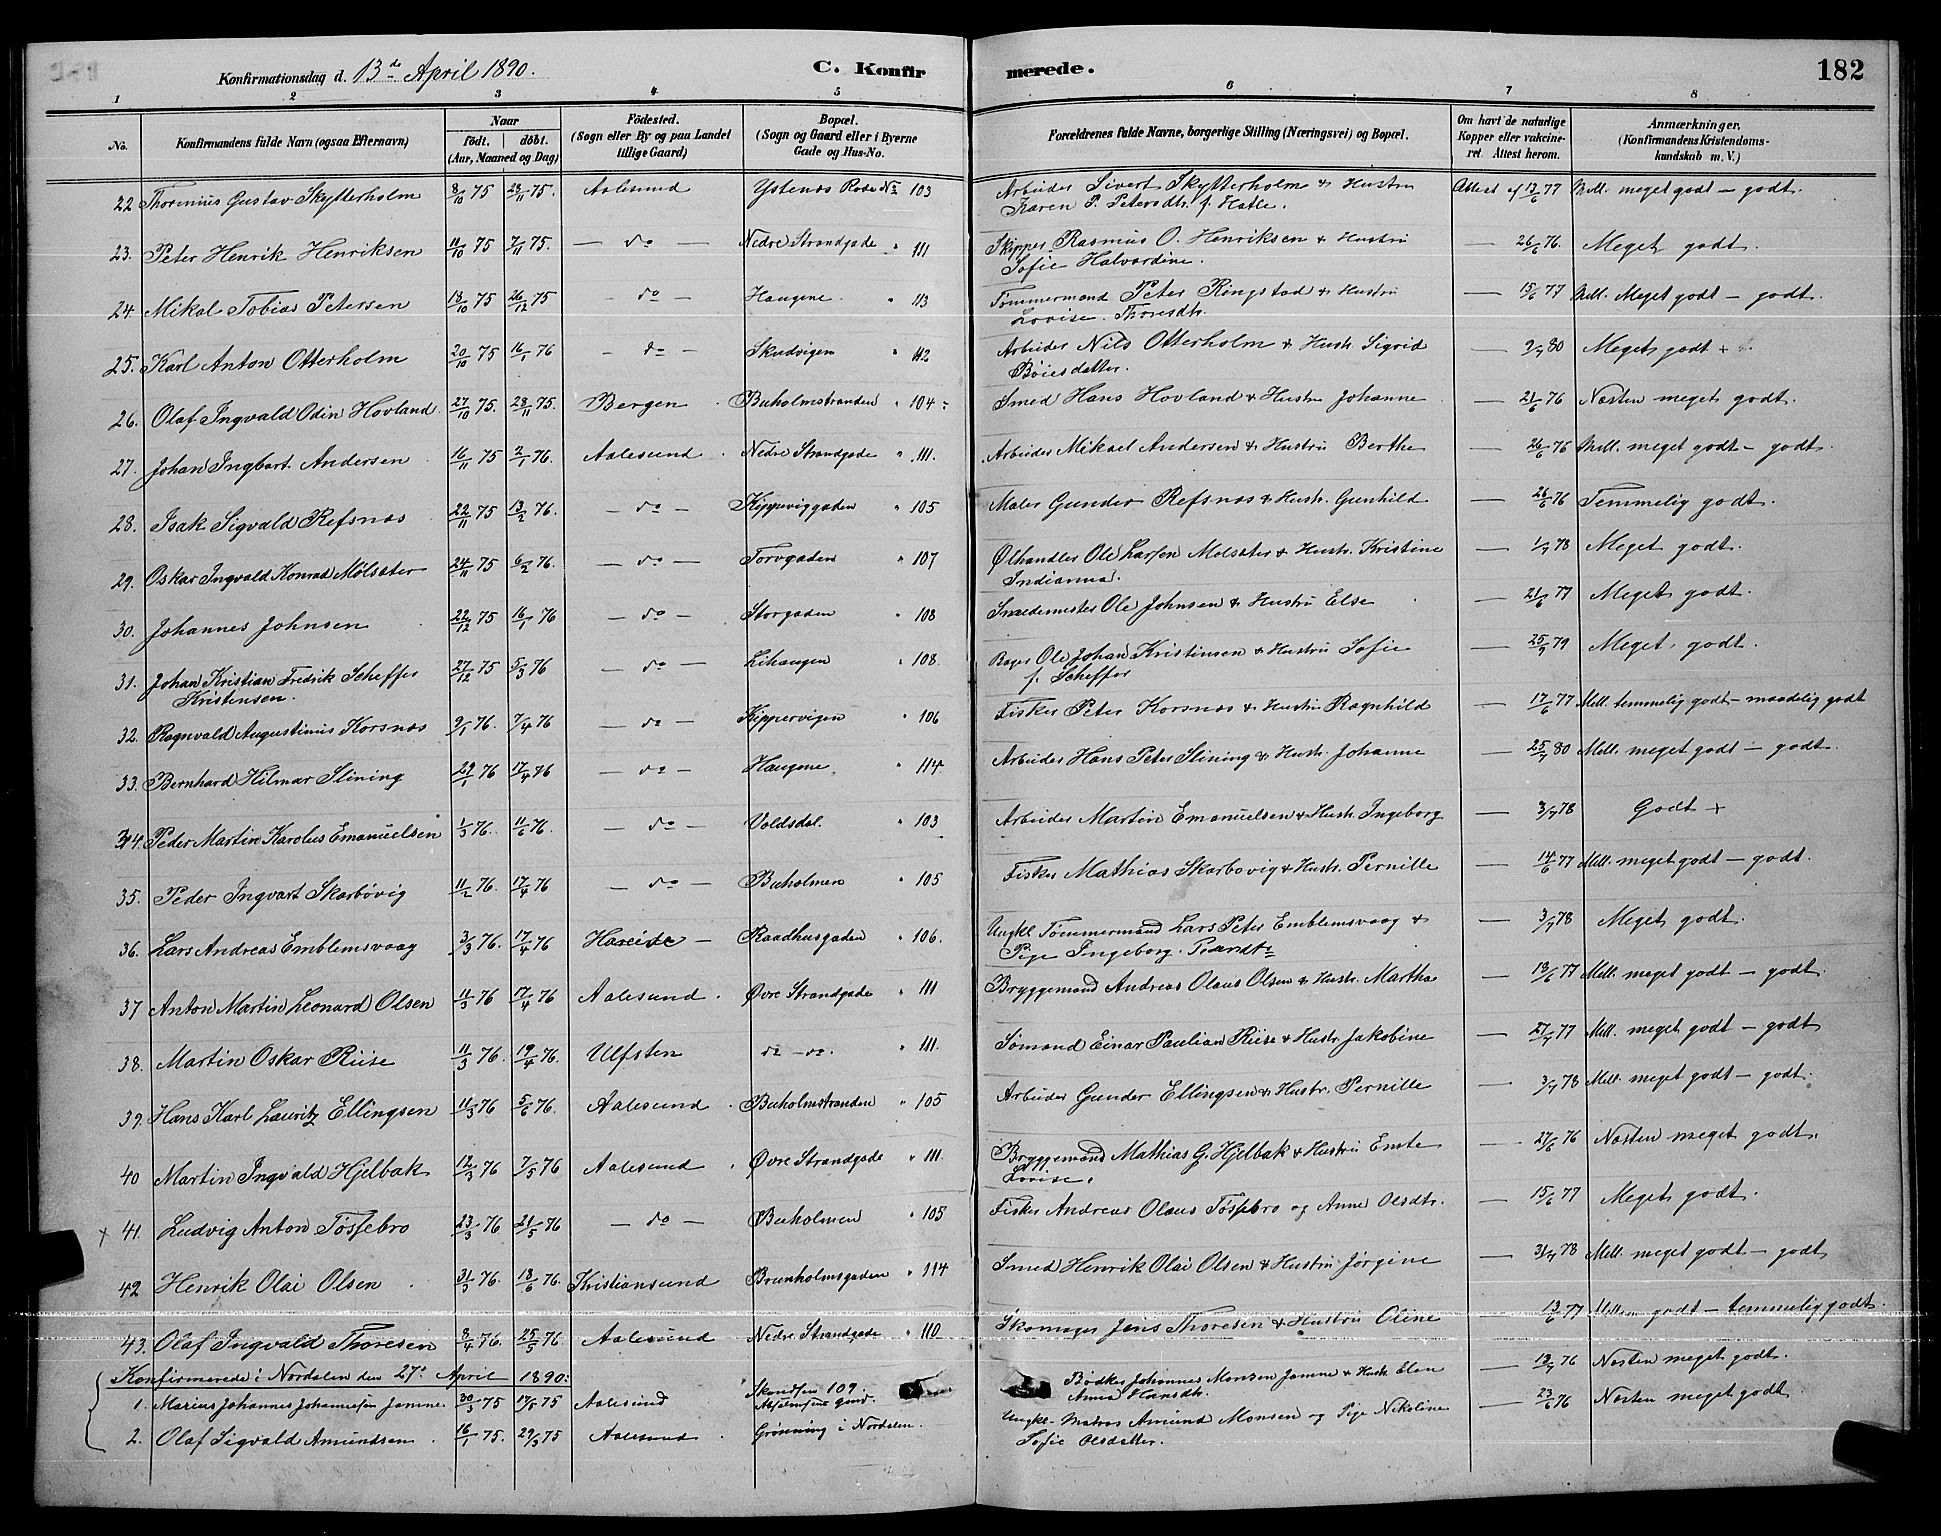 Konfirmationsdag d. 13de April 1890. C. Konfirmerede. 182
1 2 3 4 5 6 7 8
No. Konfirmandens fulde Navn (ogsaa Efternavn) Naar født. døbt. (Aar, Maaned og Dag) Födested. (Sogn eller By og paa Landet tillige Gaard) Bopæl. (Sogn og Gaard eller i Byerne Gade og Hus-No. Forældrenes fulde Navne, borgerlige Stilling (Næringsvei) og Bopæl. Om havt de naturlige Kopper eller vakcineret. Attest herom. Anmærkninger, (Konfirmandens Kristendomskundskab m. V.)
22 Thorinius Gustav Skytterholm 8/10 75 28/11 75. Aalesund Ystenæs Rode No 103 Arbeider Sivert Skytterholm & Hustru Attest af 12/6 77 Mell. meget godt – godt.
Karen P. Petersdtr. f. Hatle.
23. Peter Henrik Henriksen 11/10 75 7/11 75. — do — Nedre Strandgade " 111 Skipper Rasmus O. Henriksen & Hustru — 26/6 76. Meget godt.
Sofie Halvardine.
24. Mikal Tobias Petersen 13/10 75 26/12 75 — do — Haugene. " 113 Tømmermand Peter Ringstad & Hustru — 15/6 77 Mell. Meget godt – godt.
Lovise Thoresdtr.
25. Karl Anton Otterholm 20/10 75 16/1 76 — do — Skudvigen " 112 Arbeider Nils Otterholm & Hustr. Sigrid — 9/7 80 Meget godt +
Bøiesdatter.
26. Olaf Ingvald Odin Hovland 27/10 75. 28/11 75. Bergen Buholmstranden " 104 Smed Hans Hovland & Hustru Johanne — 21/6 76 Næsten meget godt.
27. Johan Ingbart Andersen 16/11 75 2/1 76. Aalesund Nedre Strandgade " 111. Arbeider Mikael Andersen & Hustru Berthe — 26/6 76 Mell. meget godt – godt
28. Isak Sigvald Refsnæs 22/11 75 13/2 76. — do — Kippeviggaden " 105 Maler Gunder Refsnæs & Hustr. Gunhild — 26/6 76 Temmelig godt.
29. Oskar Ingvald Konrad Mølsæter 24/11 75 6/2 76. — do — Torvgaden " 107 Ølhandler Ole Larsen Molsæter & Hustr. Kristine — 1/7 78 Meget godt.
Indianna.
30. Johannes Johnsen 22/12 75 16/1 76 — do — Storgaden " 108 Smedemester Ole Johnsen & Hustru Else — 21/6 77 Meget godt.
31. Johan Kristian Fredrik Scheffer 27/12 75 5/3 76 — do — Lihaugen " 108. Bager Ole Johan Kristinsen & Hustru Sofie — 25/9 79 Meget godt.
Kristensen. f. Scheffer
32. Ragnvald Augustinus Korsnæs 9/1 76. 7/4 76 — do — Kippervigen " 106 Fisker Peter Korsnæs & Hustru Ragnhild — 12/6 77 Mell. temmelig godt – maadelig godt
33. Bernhard Hilmar Slining 29/1 76 17/4 76 — do — Haugene " 114. Arbeider Hans Peter Slining & Hustr. Johanne — 25/7 80 Mell. meget godt – godt.
34. Peder Martin Karolus Emanuelsen 1/3 76. 11/6 76. — do — Voldsdal. " 103 Arbeider Martin Emanuelsen & Hustr. Ingeborg — 3/7 78 Godt +
35. Peder Ingvart Skarbøvig 11/2 76. 17/4 76 — do — Buholmen " 105 Fisker Mathias Skarbovig & Hustr. Pernille — 14/6 77 Mell. meget godt – godt.
36. Lars Andreas Emblemsvaag 3/3 76. 17/4 76 Hareide — Raadhusgaden " 106. Ungkl. Tømmermand Lars Peter Emblemsvaag & — 3/7 78 Meget godt.
Pige Ingeborg
37 Anton Martin Leonard Olsen 11/3 76 17/4 76 Aalesund. Øvre Strandgade " 111 Bryggemand Andreas Olaus Olsen & Hustr. Martha — 18/6 77 Mell. meget godt – godt.
38. Martin Oskar Riise 11/3 76. 19/4 76. Ulfsten do — do. " 111. Sømand Einar Paulian Riise & Hustr. Jakobine — 27/7 77 Mell. meget godt – godt
39. Hans Karl Lauritz Ellingsen 11/3 76 5/6 76. Aalesund. Buholmstranden " 105 Arbeider Gunder Ellingsen & Hustr. Pernille — 3/7 78 Mell. meget godt – godt.
40 Martin Ingvald Hjelbak 12/3 76 7/5 76 Aalesund. Øvre Strandgade " 111. Bryggemand Mathias G. Hjelbak & Hustru Emte — 27/6 76 Næsten meget godt.
Lovise.
× 41. Ludvig Anton Tøssebro 23/3 76 21/5 76 — do — Buholmen " 105 Fisker Andreas Olaus Tøssebro og Anne Olsdtr. — 15/6 77 Meget godt.
42 Henrik Olai Olsen 31/3 76. 18/6 76. Kristiansund Brunholmsgaden " 114 Smed Henrik Olai Olsen & Hustru Jørgine — 31/7 78 Mell. meget godt – godt
43. Olaf Ingvald Thoresen 8/4 76. 25/5 76. Aalesund Nedre Strandgade " 110 Skomager Jens Thoresen & Hustru Oline — 13/6 77 Mellem godt – temmelig godt.
Konfirmerede i Nordalen den 27de April 1890:
1. Marius Johannes Johannesen Jamne 30/3 75 17/5 75 Aalesund Skandsen 109 Bødker Johannes Monsen Jamne & Hustr. Elen — 13/7 76 Næsten meget godt.
Anna Hansdtr.
2. Olaf Sigvald Amundsen 16/1 75. 29/3 75 Aalesund. Grønning i Nordalen. Ungkl. Matros Amund Monsen og Pige Nikoline — 23/6 76 Næsten meget godt.
Sofie Olsdatter.